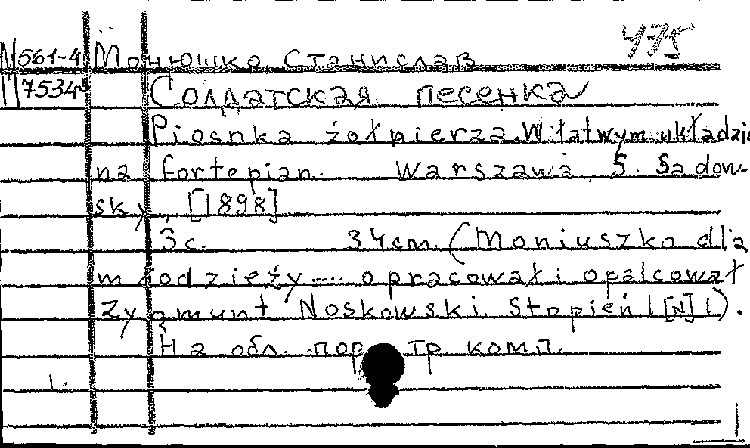 475
N 561-4 Монюшко, Станислав
7534 Солдатская песенка
Piosnka żołnierza. W łatwym układzie
na fortepian. Warszawa, S. Sadow-
sky, [1898]
3 с. 34 cm. (Moniuszko dla
młodzieży ---- opracował i opalcował
Zygmunt Noskowski. Stopień I [N] I).
На обл. пор тр комп.